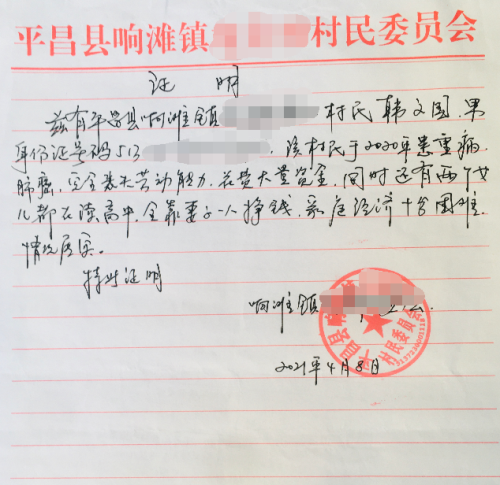 平昌县响滩镇 村民委员会
证 明
兹有平昌县响滩镇 村民韩文国,男
身份证号码513 。该村民于2020年患重病
肺癌,完全丧失劳动能力,花费大量资金,同时还有两个女
儿都在读高中,全靠妻子一人挣钱,家庭经济十分困难,
情况属实。
特此证明
响滩镇
2021年4月8日
平昌县 村民委员会